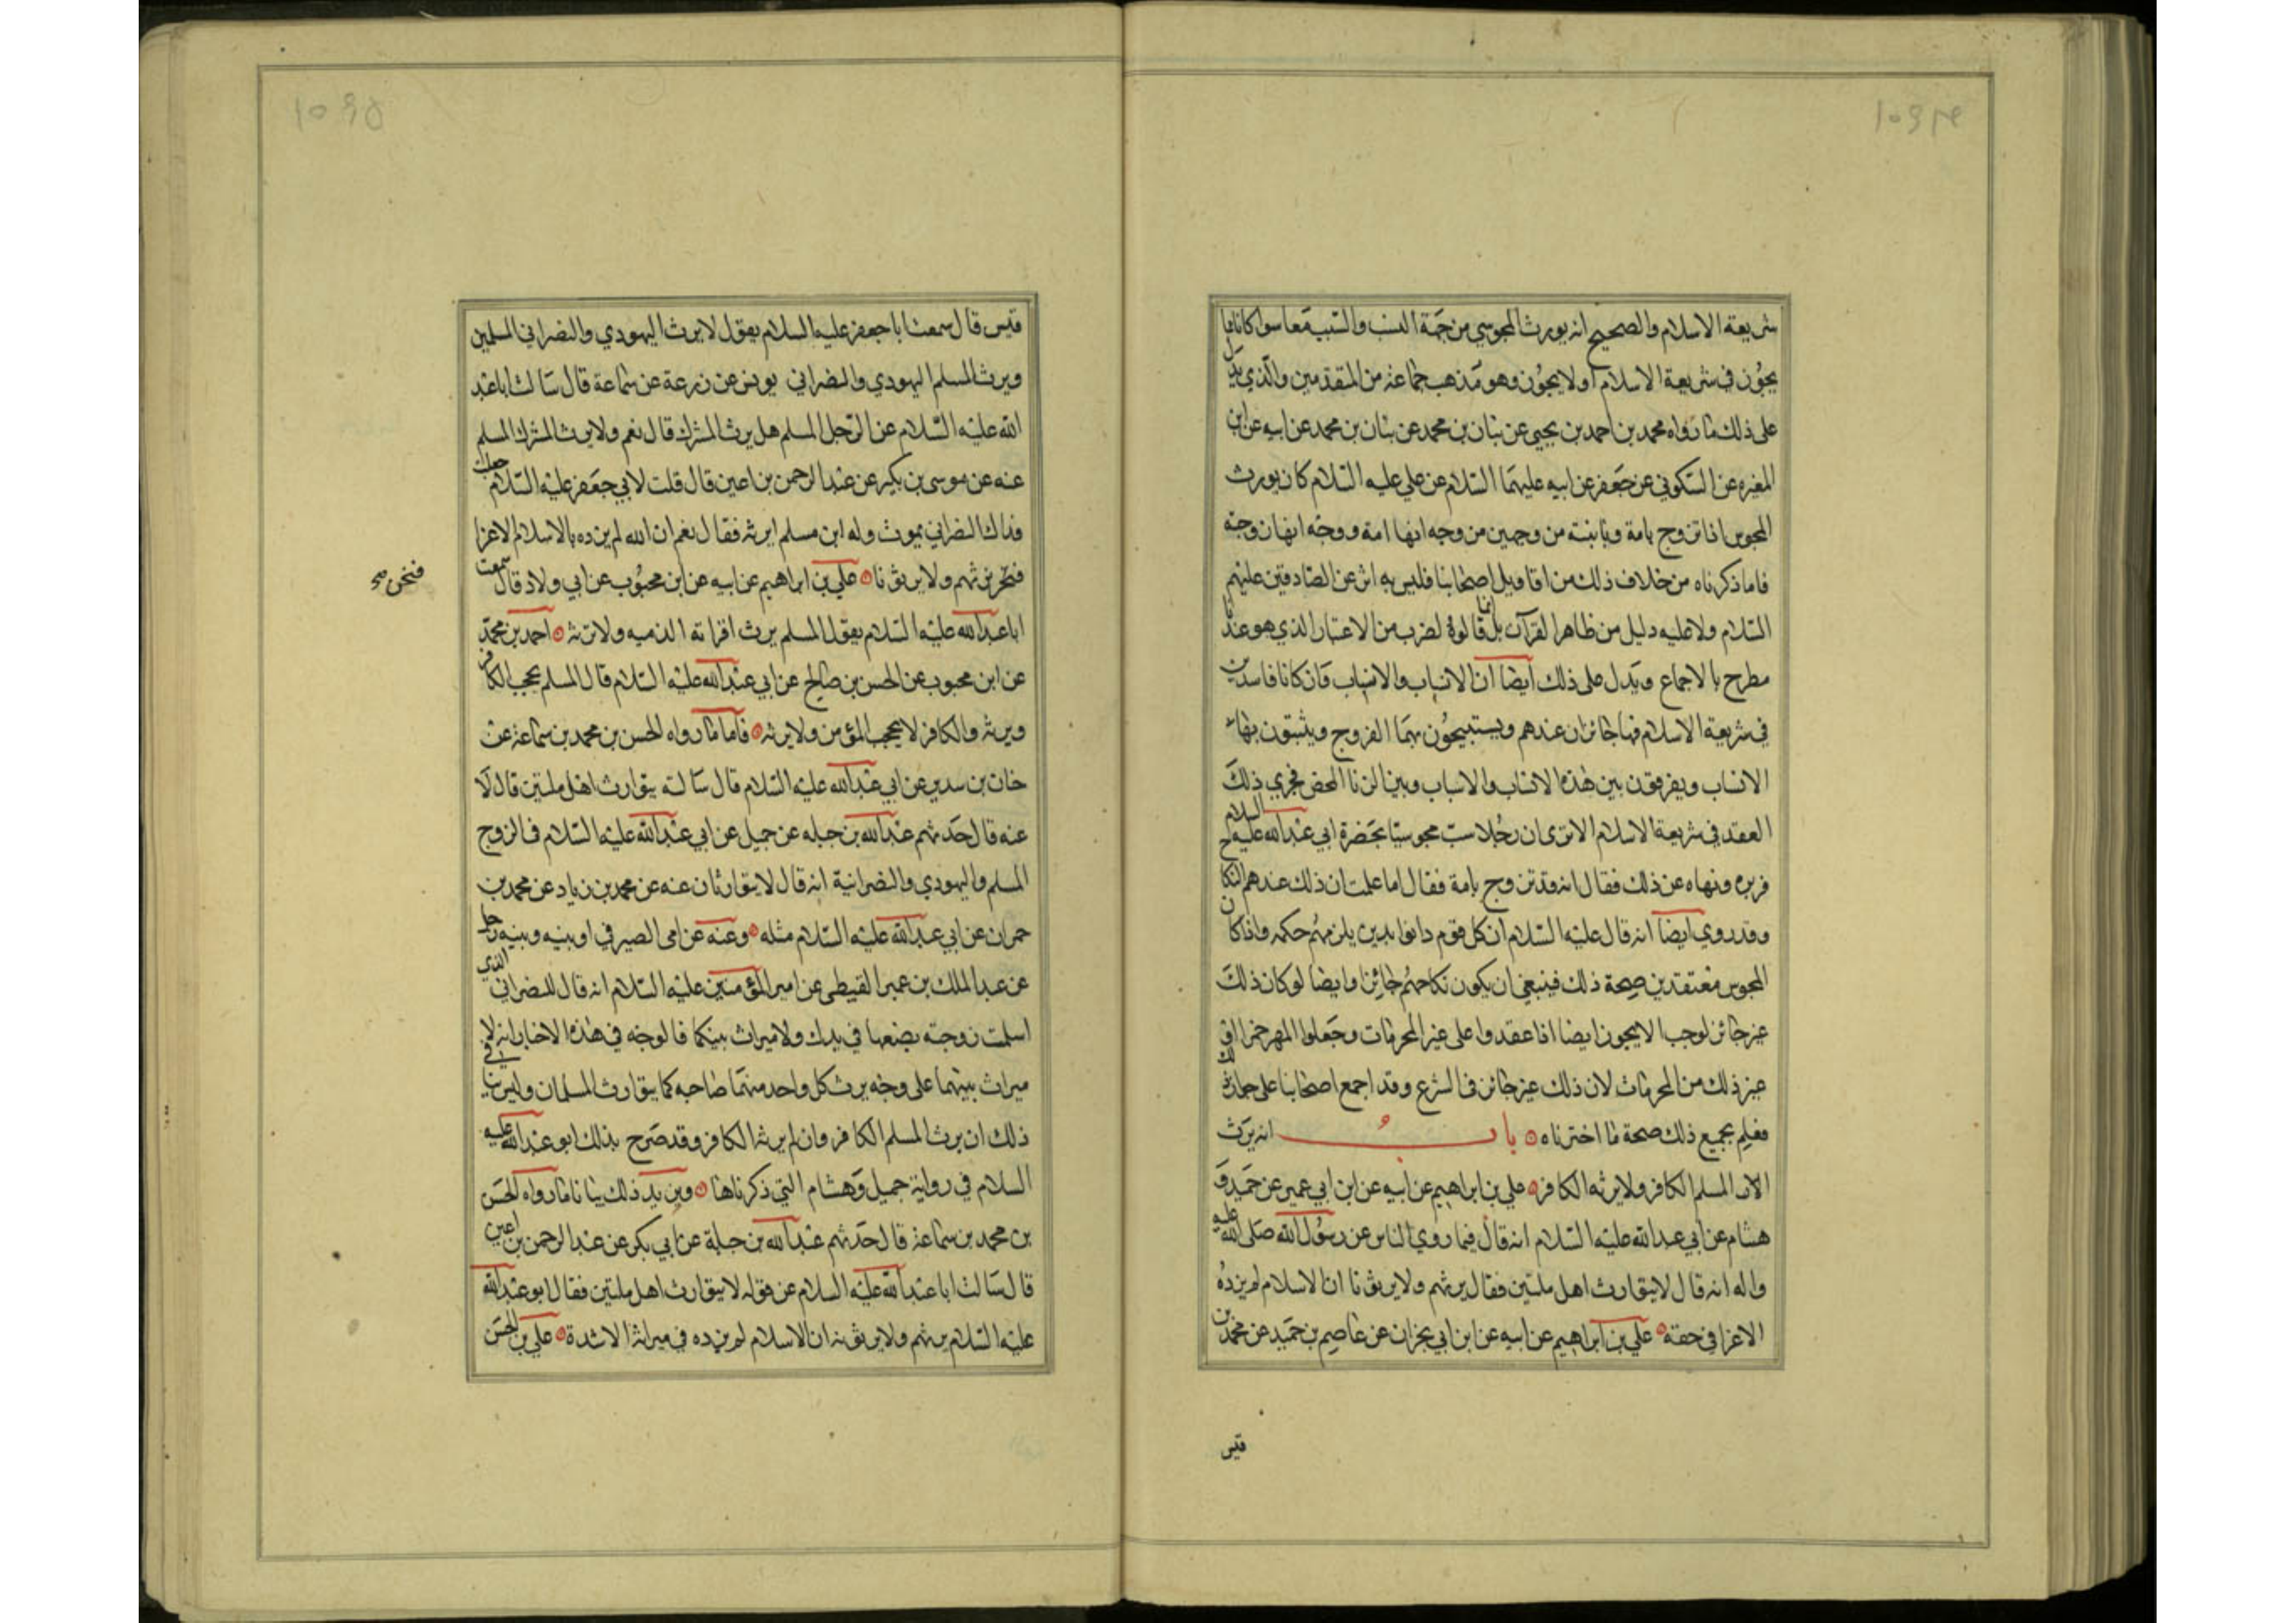 شريعة الاسلام والصحيح انه يورث المجوسي من جهة النسب والسبب معا سوا كانا مما
يجوز في شريعة الاسلام اولا يجوز وهو مذهب جماعة من المتقدمين والذي يدل
على ذلك ما رواه محمد بن احمد بن يحيى عن بنان بن محمد عن بنان بن محمد عن ابيه عن ابن
المغيره عن السكوني عن جعفر عن ابيه عليهما السلام عن علي عليه السلام كان يورث
المجوس اذا تزوج بامة وبابنته من وجهين من وجه انها امة ووجه انها زوجته
فاما ذكرناه من خلاف ذلك من اقاويل اصحابنا فليس به اثر عن الصادقين عليهم
السلام ولا عليه دليل من ظاهر القرآن بل انما قالوه لضرب من الاعتبار الذي هو عندنا
مطرح بالاجماع ويدل على ذلك ايضا ان الانساب والاسباب وان كانا فاسدين
في شريعة الاسلام فهما جائزان عندهم ويستبيحون بهما الفروج ويثبتون بها
الانساب ويفرقون بين هذه الانساب والاسباب وبين الزنا المحض فجرى ذلك
العقد في شريعة الاسلام الا ترى ان رجلا سب مجوسيا بحضرة ابي عبدالله عليه السلام
فزبره ونهاه عن ذلك فقال انه قد تزوج بامة فقال اما علمت ان ذلك عندهم النكاح
وقد روي ايضا انه قال عليه السلام ان كل قوم دانوا بدين يلزمهم حكمه واذا كان
المجوس معتقدين صحة ذلك فينبغي ان يكون نكاحهم جائزا وايضا لو كان ذلك
غير جائز لوجب الا يجوز ايضا اذا عقدوا على غير المحرمات وجعلوا المهر خمرا او
غير ذلك من المحرمات لان ذلك غير جائز في الشرع وقد اجمع اصحابنا على جواز ذلك
فعلم بجميع ذلك صحة ما اخترناه باب انه يرث
المسلم الكافر ولا يرثه الكافر علي بن ابراهيم عن ابيه عن ابن ابي عمير عن جميل و
هشام عن ابي عبدالله عليه السلام انه قال فيما روي الناس عن رسول الله صلى الله عليه
واله انه قال لا يتوارث اهل ملتين فقال يرثهم ولا يرثونا ان الاسلام لم يزده
الا عزا في حقه علي بن ابراهيم عن ابيه عن ابن ابي نجران عن عاصم بن حميد عن محمد بن
قيس
قيس قال سمعت ابا جعفر عليه السلام يقول لا يرث اليهودي والنصراني المسلمين
ويرث المسلم اليهودي والنصراني يونس عن زرعة عن سماعة قال سالت ابا عبد
الله عليه السلام عن الرجل المسلم هل يرث المشرك قال نعم ولا يرث المشرك المسلم
عنه عن موسى بن بكير عن عبد الرحمن بن اعين قال قلت لابي جعفر عليه السلام جعلت
فداك النصراني يموت وله ابن مسلم ايرثه فقال نعم ان الله لم يزده بالاسلام الا عزا
فنحن نرثهم ولا يرثونا علي بن ابراهيم عن ابيه عن ابن محبوب عن ابي ولاد قال سمعت
فنحن صح
ابا عبدالله عليه السلام يقول المسلم يرث امراته الذميه ولا ترثه احمد بن محمد
عن ابن محبوب عن الحسن بن صالح عن ابي عبدالله عليه السلام قال المسلم يحجب الكافر
ويرثه والكافر لا يحجب المؤمن ولا يرثه فاما ما رواه الحسن بن محمد بن سماعة عن
حنان بن سدير عن ابي عبدالله عليه السلام قال سالته يتوارث اهل ملتين قال لا
عنه قال حدثهم عبدالله بن جبله عن جميل عن ابي عبدالله عليه السلام في الزوج
المسلم واليهودي والنصرانية انه قال لا يتوارثان عنه عن محمد بن زياد عن محمد بن
حمران عن ابي عبدالله عليه السلام مثله وعنه عن امي الصيرفي او بينه وبينه رجل
عن عبد الملك بن عمير القبطي عن امير المؤمنين عليه السلام انه قال للنصراني الذي
اسلمت زوجته بضعها في يدك ولا ميراث بينكما فالوجه في هذه الاخبار انه لا
ميراث بينهما على وجه يرث كل واحد منهما صاحبه كما يتوارث المسلمان وليس ينافي
ذلك ان يرث المسلم الكافر وان لم يرثه الكافر وقد صرح بذلك ابو عبدالله عليه
السلام في رواية جميل وهشام التي ذكرناها ويزيد ذلك بيانا ما رواه الحسن
بن محمد بن سماعة قال حدثهم عبدالله بن جبلة عن ابي بكر عن عبد الرحمن بن اعين
قال سالت ابا عبدالله عليه السلام عن قوله لا يتوارث اهل ملتين فقال ابو عبدالله
عليه السلام يرثهم ولا يرثونه ان الاسلام لم يزده في ميراثه الا شدة علي بن الحسن